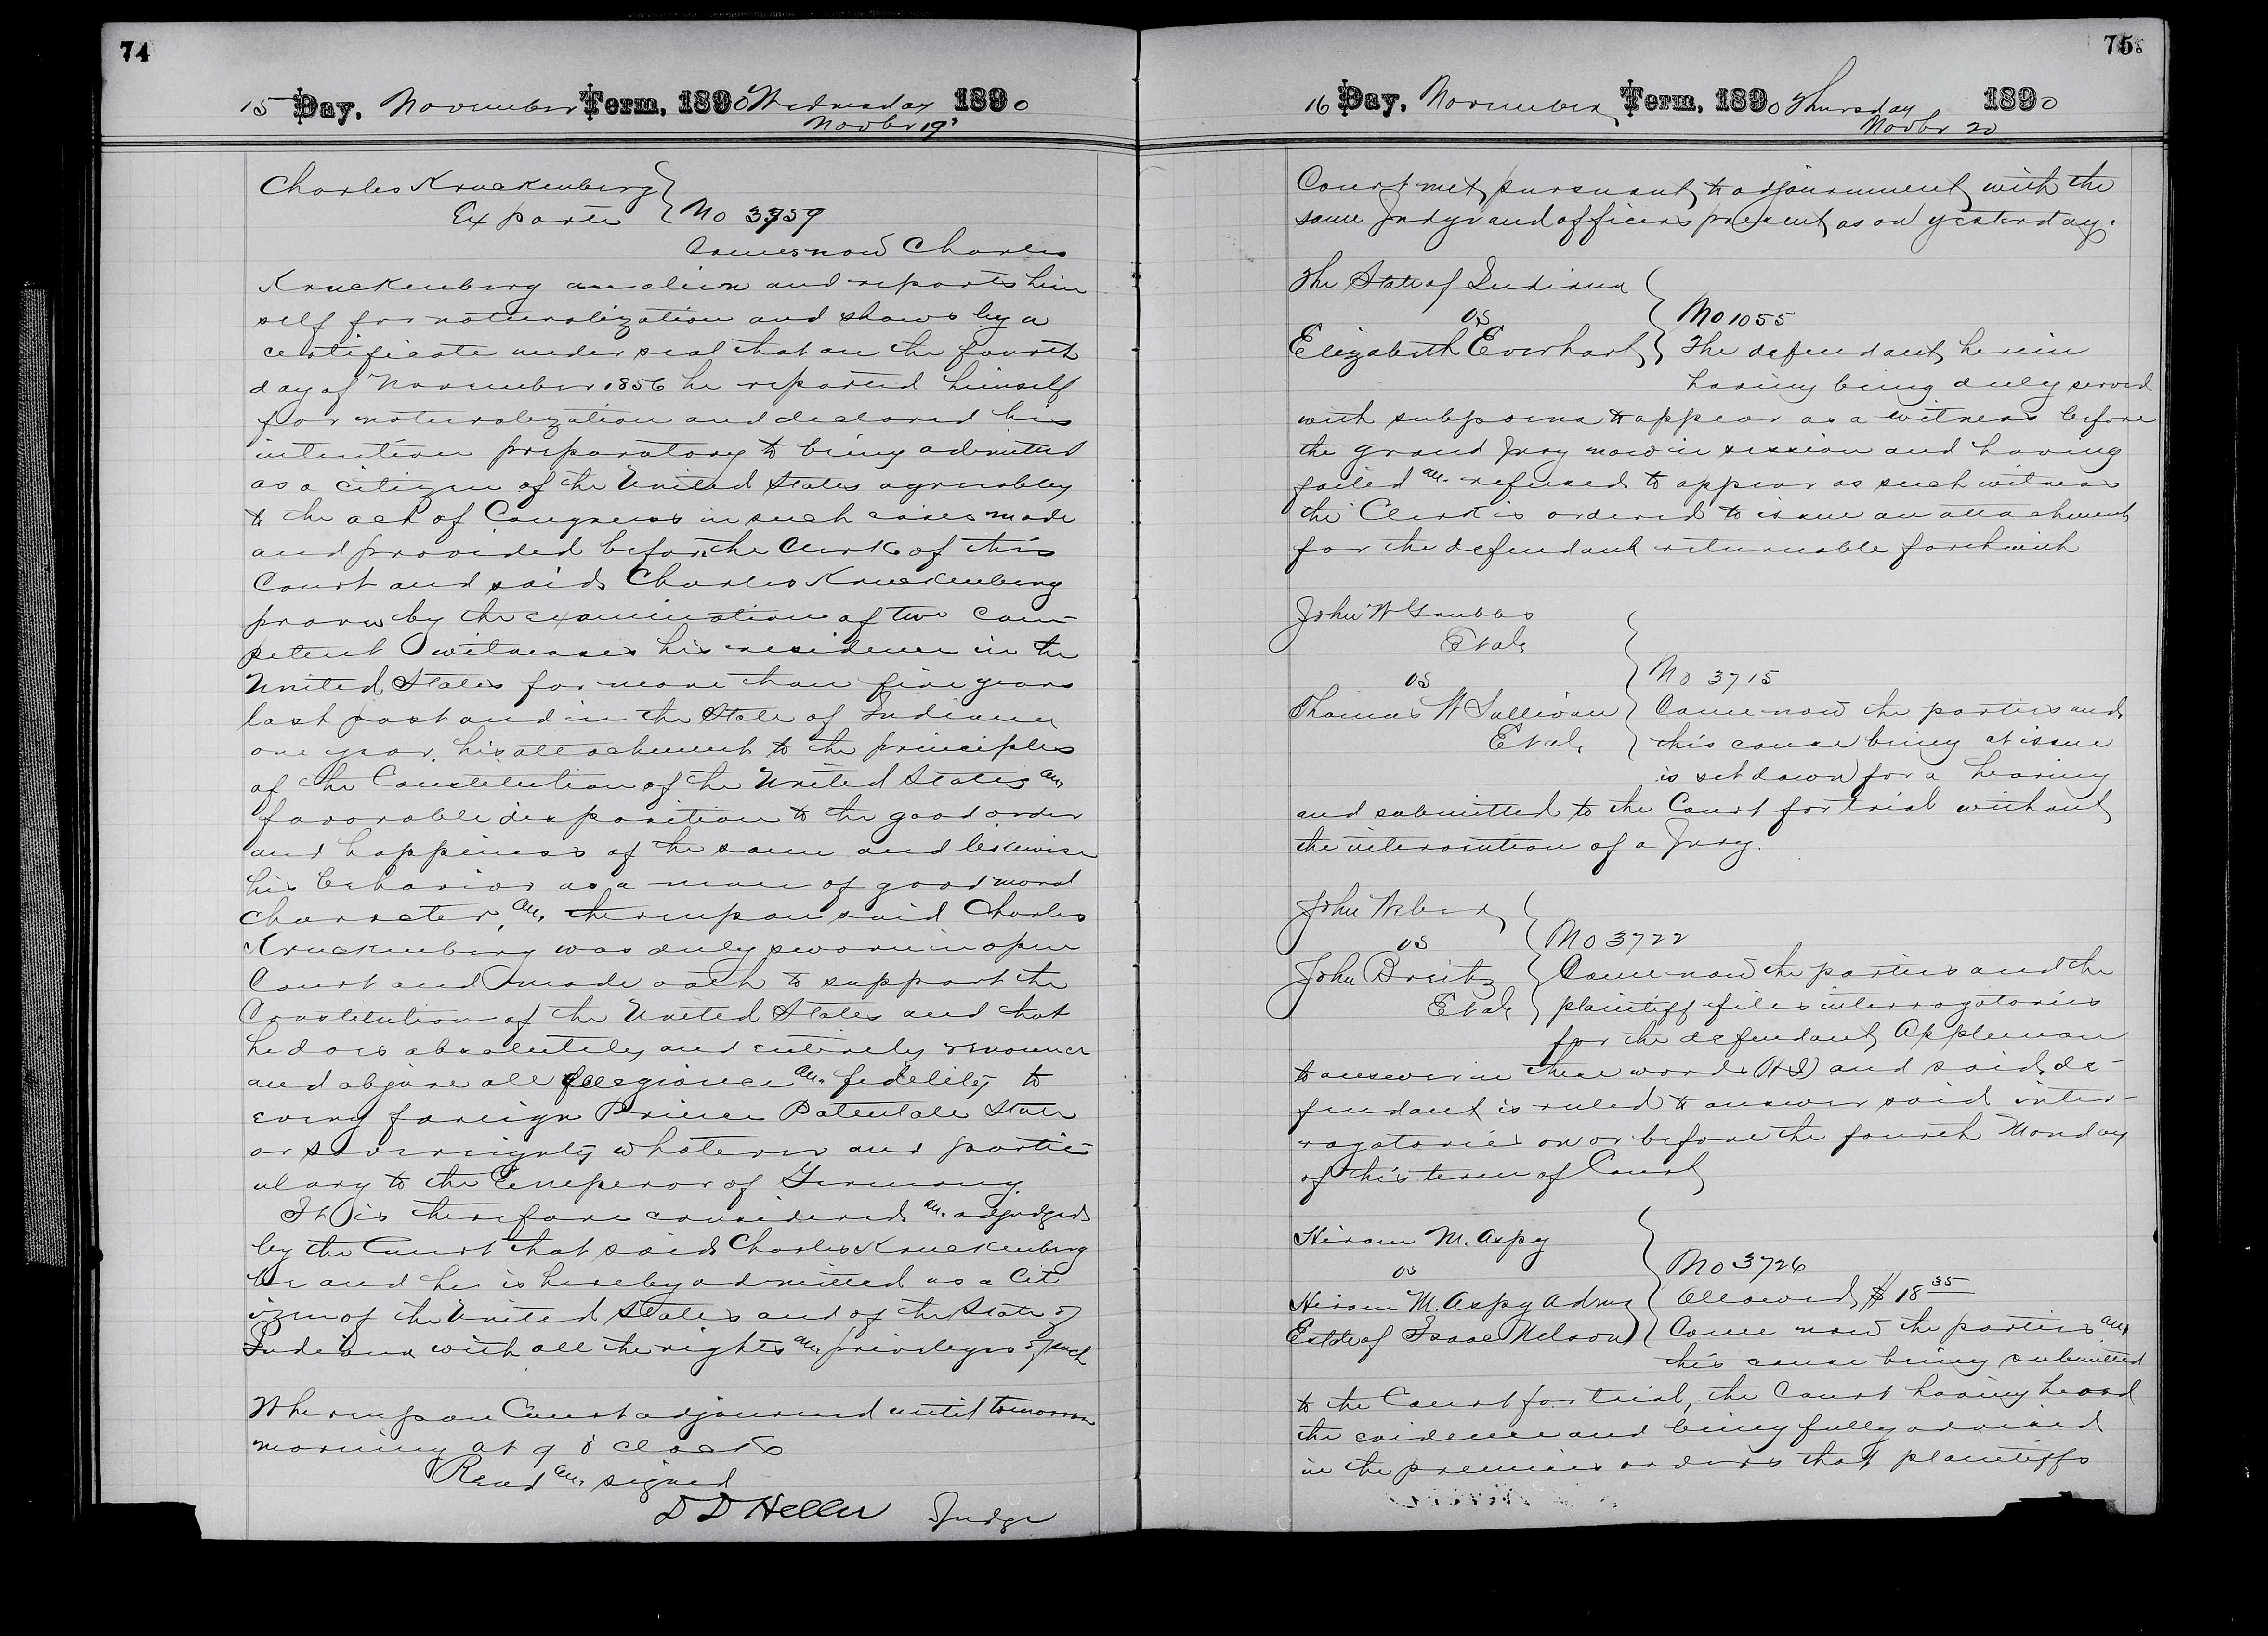 74
15 Day, November Term, 1890 Wednesday 1890
Novbr 19"
Charles Kruckenberg
Exparte No 3959
Comes now Charles
Kruckenberg an alien and reports him
self for naturalization and shows by a
certificate under seal that on the fourth
day of November 1856 he reported himself
for naturalization and declared his
intention preparatory to being admitted
as a citizen of the United States agreeabley
to the act of Congress in such cases made
and provided before the Clerk of this
Court and said Charles Kruckenberg
proves by the examination of two com-
petent witnesses his residence in the
United States for more than five years
last past and in the State of Indiana
one year, his attachment to the principles
of the Constitution of the United States and
favorable disposition to the good order
and happiness of the same and likewise
his behavior as a man of good moral
character, and thereupon said Charles
Kruckenberg was duly sworn in open
Court and made oath to support the
Constitution of the United States and that
he does absolutely and entirely renounce
and abjure all allegiance and fidelity to
every foreign Prince Potentate State
or sovereignty whatever and partic-
ulary to the Emperor of Germany.
It is therefore considered and adjudged
by the Court that said Charles Kruckenberg
be and he is hereby admitted as a cit
izen of the United States and of the State of
Indiana with all the rights and privileges of such
Whereupon Court adjourned until tomorrow
morning at 9 o'clock
Read and signed
D D Heller Judge
75
16 Day, November Term, 1890 Thursday 1890
Novbr 20
Court met pursuant to adjournment with the
same Judge and officers present as on yesterday.
The State of Indiana
vs No 1055
Elizabeth Everhart The defendant herein
having being duly served
with subpoena to appear as a witness before
the grand Jury now in session and having
failed and refused to appear as such witness
the Clerk is ordered to issue an attachment
for the defendant returnable forthwith
John W Grubbs
Et al
vs No 3715
Thomas W Sullivan Come now the parties and
Et al, this cause being at issue
is set down for a hearing
and submitted to the Court for trial without
the intervention of a Jury.
John Weber
vs No 3722
John Breitz Come now the parties and the
Et al plaintiff files interrogatories
for the defendant Appleman
to answer in these words (H I) and said de-
fendant is ruled to answer said inter-
rogatories on or before the fourth Monday
of this term of Court
Hiram M. Aspy
vs No 3726
Hiram M. Aspy Admr Allowed $18 35
Estate of Isaac Nelson Come now the parties and
this cause being submitted
to the Court for trial, the Court having heard
the evidence and being fully advised
in the premises orders that plaintiffs